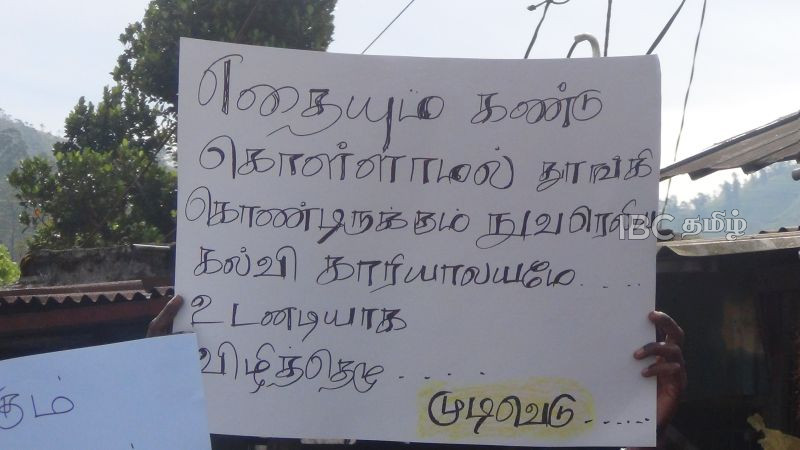 எதையும் கண்டு
கொள்ளாமல் தூங்கி
கொண்டிருக்கும் நுவரெலிய
கல்வி காரியாலயமே....
உடனடியாக
விழித்தெழு.....
முடிவெடு......
IBC தமிழ்